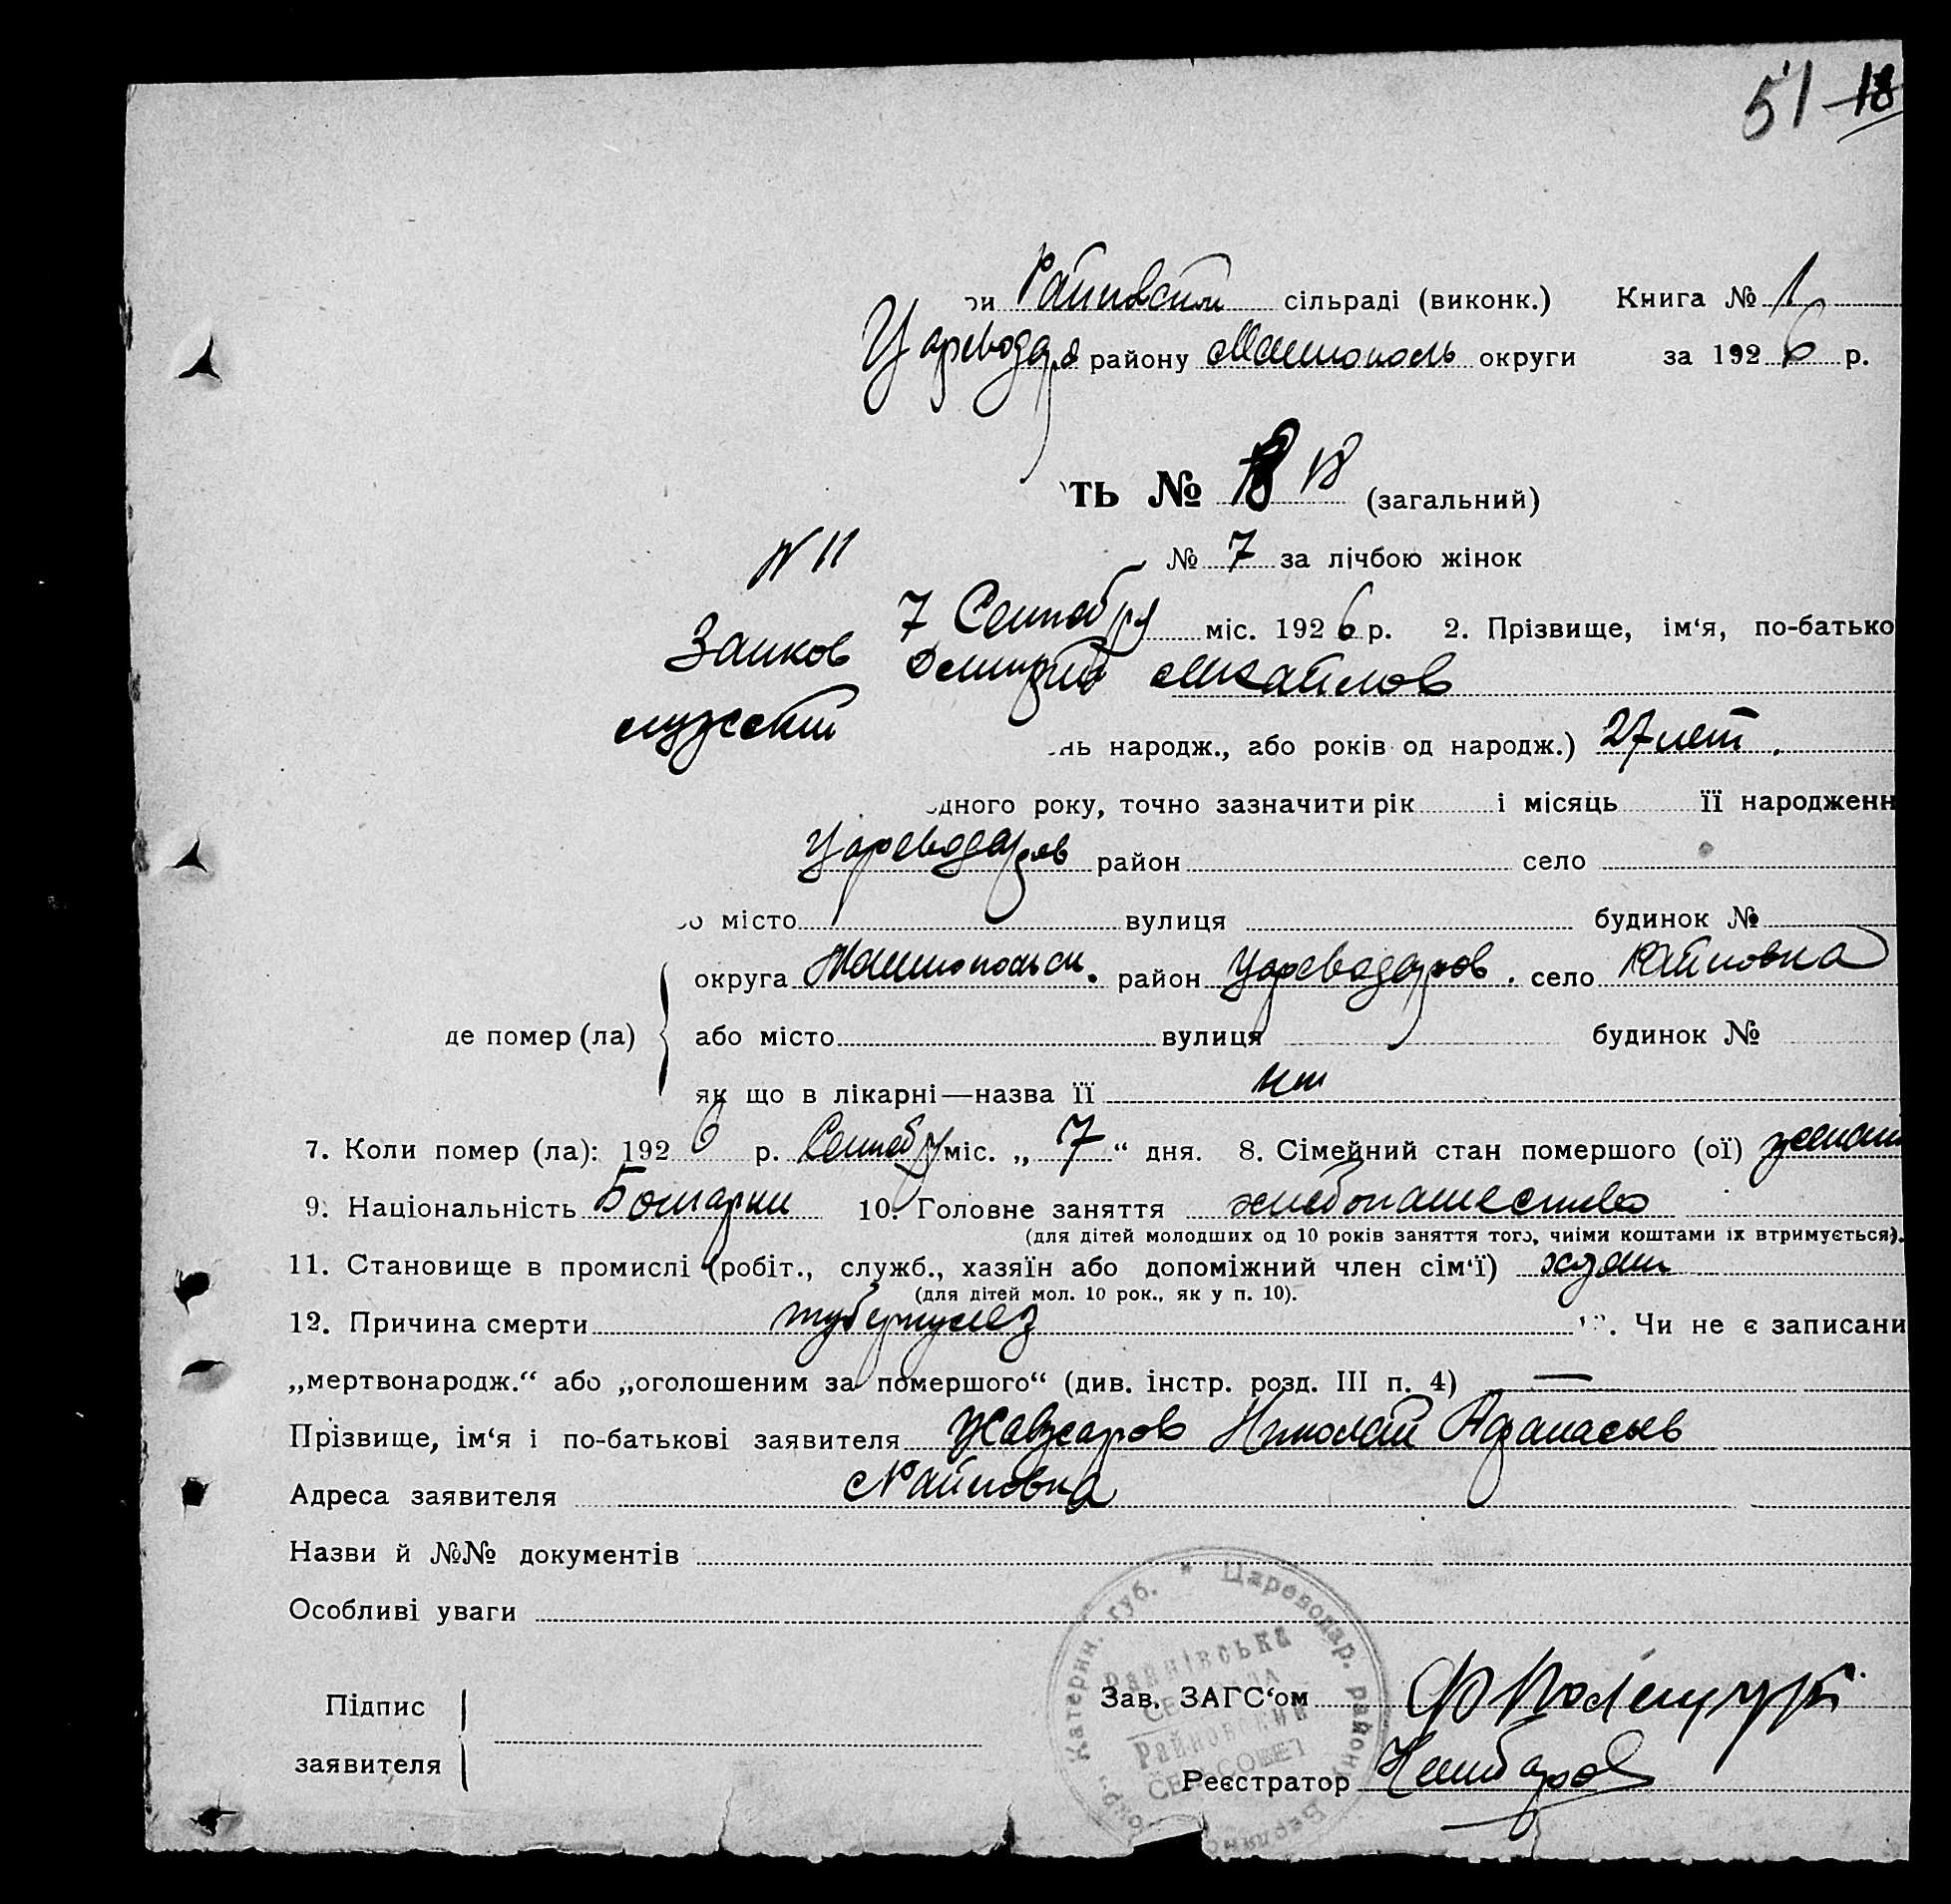 51 18
ри Райновской сільраді (виконк.) Книга № 1
Цареводаро району Мелитополь округи за 1926 р.
ть № 18 (загальний)
N 11 № 7 за лічбою жінок
7 Сентября міс. 1926 р. 2. Прізвище, ім‘я, по-батько
Заиков Дмитрий Михайлов
мужской
нь народж., або років од народж.) 27 лет.
дного року, точно зазначити рік і місяць її народженн
Цареводаров район село
о місто вулиця будинок №
округа Мелитопольск. район Цареводаров. село Райновка
де помер (ла) або місто вулиця будинок №
як що в лікарні—назва її нет
7. Коли помер (ла): 1926 р. Сентября міс. „7“ дня. 8. Сімейний стан помершого (ої) женат
9. Національність Болгарин 10. Головне заняття хлебопашество
(для дітей молодших од 10 років заняття того, чиїми коштами їх втримується).
11. Становище в промислі (робіт., служб., хазяїн або допоміжний член сім‘ї)
(для дітей мол. 10 рок., як у п. 10).
12. Причина смерти туберкулез Чи не є записани
„мертвонародж.“ або „оголошеним за помершого“ (див. інстр. розд. III п. 4) —
Прізвище, ім‘я і по-батькові заявителя Николай Афанасьев
Адреса заявителя с Райновка
Назви й №№ документів
Особливі уваги
Катерин. губ. * Цареводар. району
Райнівська
СЕЛЬРАДА
Райновский
СЕЛЬСОВЕТ
Підпис
заявителя
Зав. ЗАГС‘ом
Реєстратор